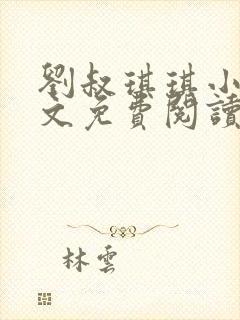 劉叔琪琪小
文免費閱讀
林雲